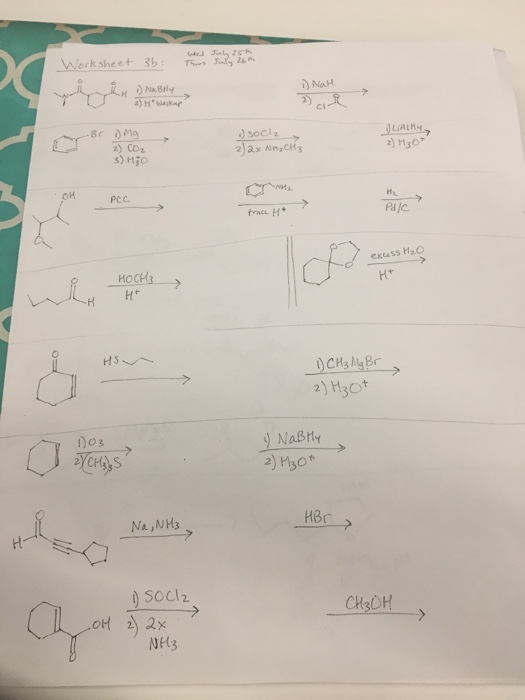 Worksheet 3b:
Wed July 25th
Thurs July 26th
H 1) NaBH4
2) H+ Workup
1) NaH
2) Cl O
Br 1) Mg
2) CO2
3) H3O
1) SOCl2
2) 2x NH2CH3
1) LiAlH4
2) H3O+
OH
PCC
O
NH2
trace H+
H2
Pd/C
O
H
HOCH3
H+
O
O
excess H2O
H+
O
HS
1) CH3MgBr
2) H3O+
1) O3
2) (CH3)2S
1) NaBH4
2) H3O+
O
H
Na, NH3
HBr
OH
O
1) SOCl2
2) 2x
NH3
CH3OH